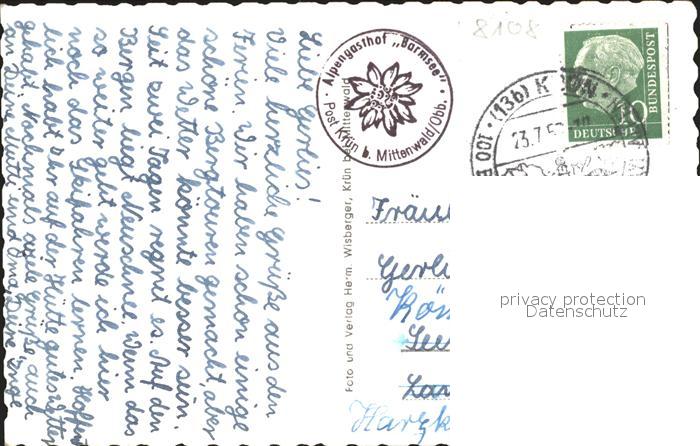 8108
Alpengasthof „Barmsee"
Post Krün b. Mittenwald/Obb.
(13b) KRÜN
23.7.5
DEUTSCHE
BUNDESPOST
10
Liebe Gerlis!
Viele herzliche Grüße aus den
Ferien. Wir haben schon einige
schöne Bergtouren gemacht, aber
das Wetter könnte besser sein.
Seit zwei Tagen regnet es. Auf den
Bergen liegt Neuschnee. Wenn das
so weiter geht werde ich hier
noch das Skifahren lernen. Hoffent
lich habt ihr auf der Hütte gutes Wetter
gehabt. Nochmals viele Grüße, auch
an Deine Mutti und Oma Deine
Foto und Verlag Herm. Wisberger, Krün bei Mittenwald
Fräul
Gerli
Kön
See
Hartk
privacy protection
Datenschutz